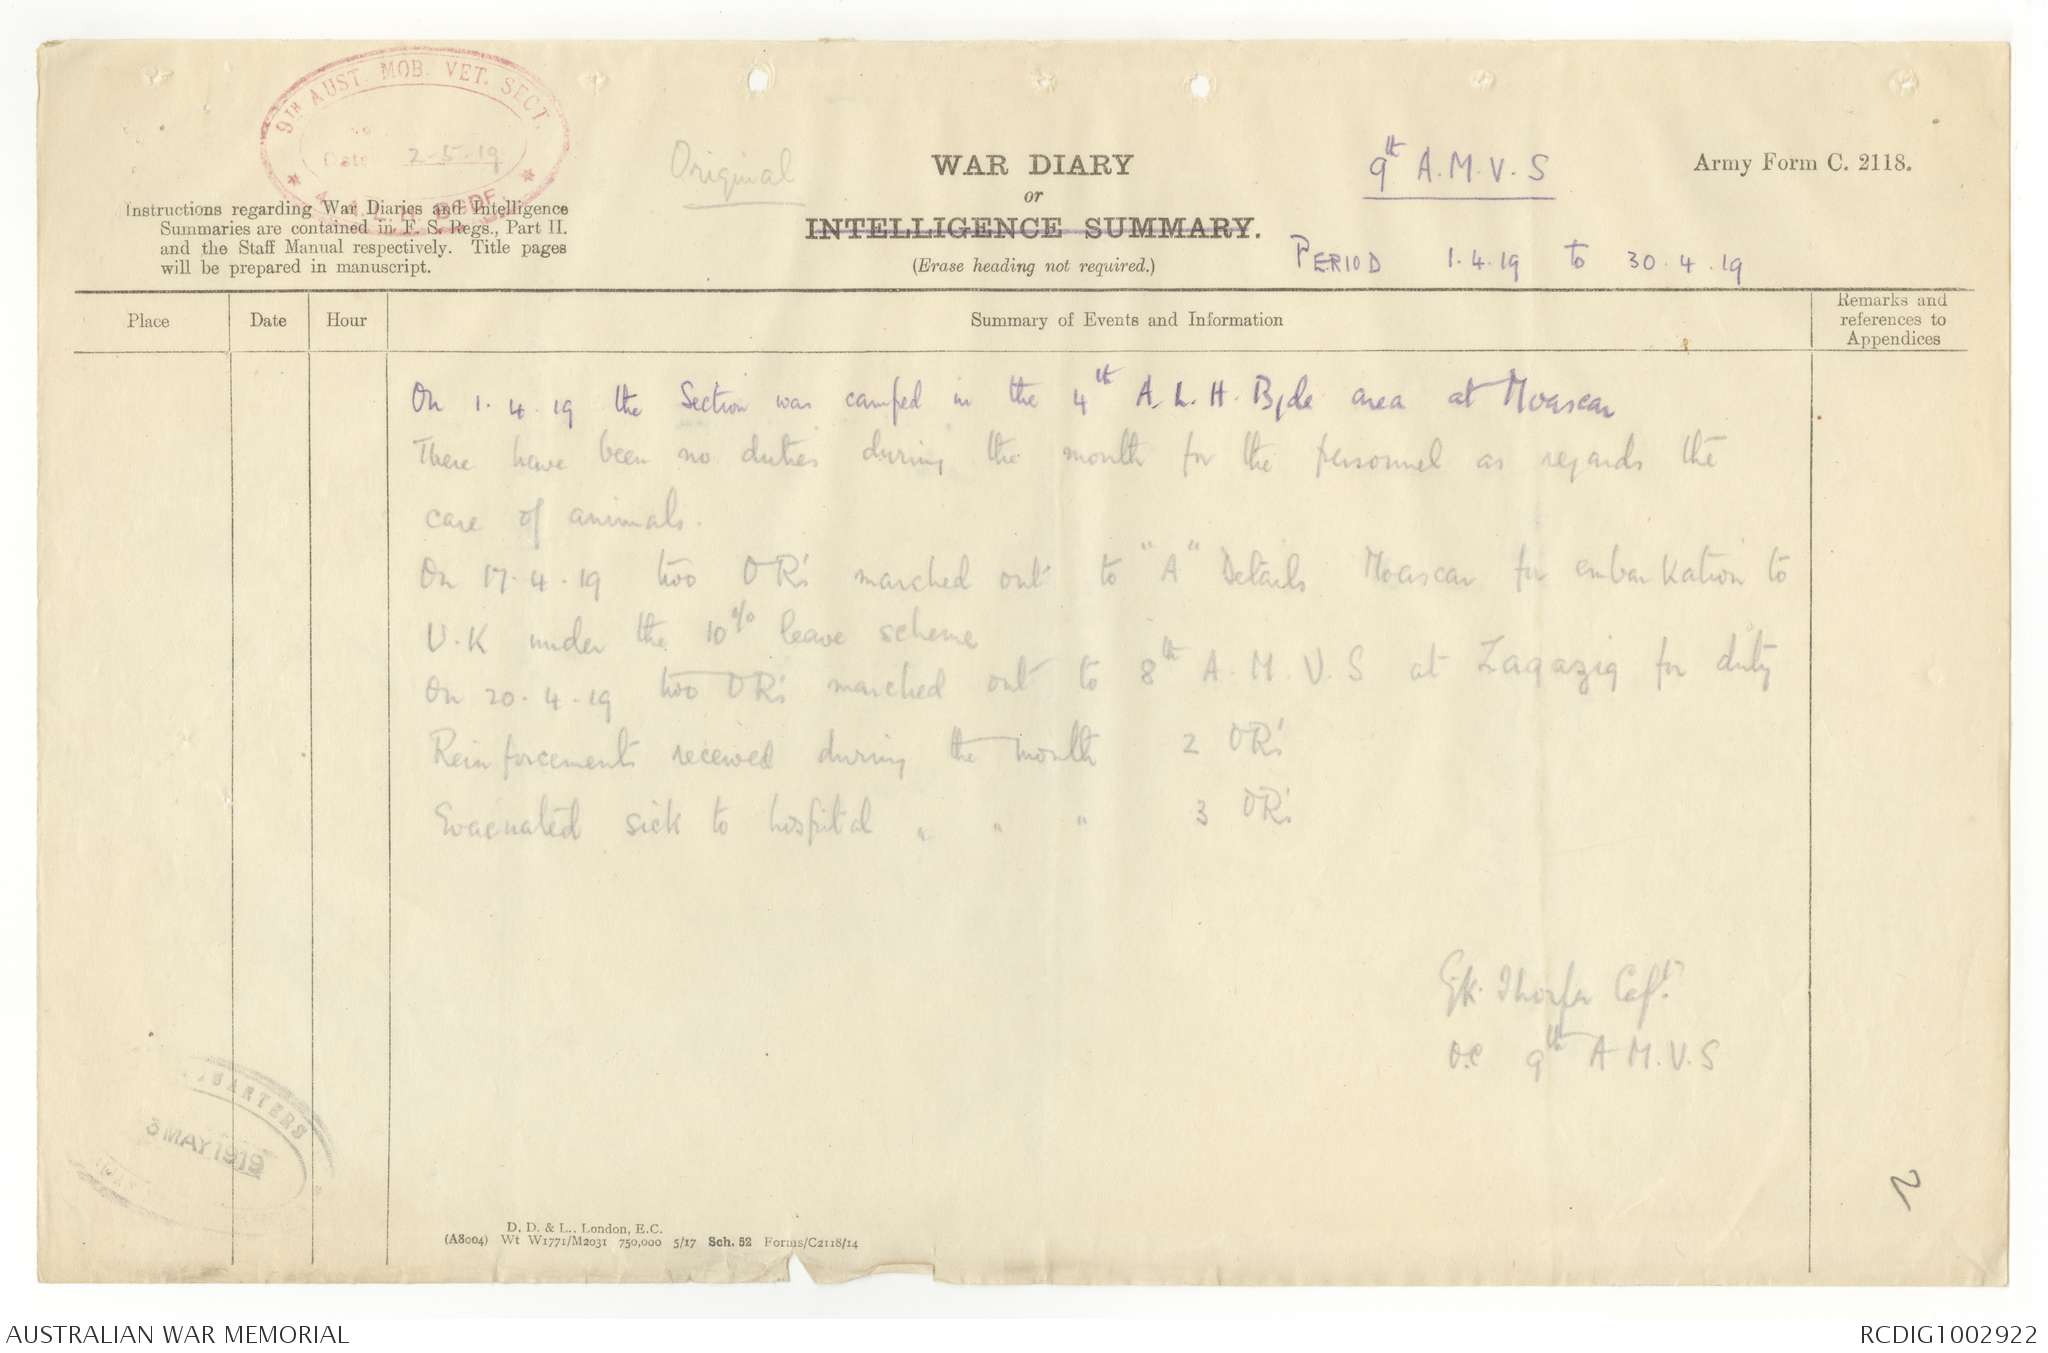 9TH AUST. MOB. VET. SECT.
Date 2-5-19
BGDE
Original
WAR DIARY
or
INTELLIGENCE SUMMARY.
(Erase heading not required.)
9th A.M.V.S
PERIOD 1.4.19 to 30.4.19
Army Form C. 2118.
Instructions regarding War Diaries and Intelligence
Summaries are contained in F. S. Regs., Part II.
and the Staff Manual respectively. Title pages
will be prepared in manuscript.
Place
Date
Hour
Summary of Events and Information
Remarks and
references to
Appendices
On 1.4.19 the Section was camped in the 4th A.L.H. Bgde area at Moascar
There have been no duties during the month for the personnel as regards the
care of animals.
On 17.4.19 two OR's marched out to "A" Details Moascar for embarkation to
U.K under the 10% leave scheme
On 20.4.19 two OR's marched out to 8th A.M.V.S at Zagazig for duty
Reinforcements received during the month 2 OR's
Evacuated sick to hospital " " " 3 OR's
Capt.
OC 9th A.M.V.S
3 MAY 1919
D. D. & L., London, E.C.
(A8004) Wt W1771/M2031 750,000 5/17 Sch. 52 Forms/C2118/14
AUSTRALIAN WAR MEMORIAL
RCDIG1002922